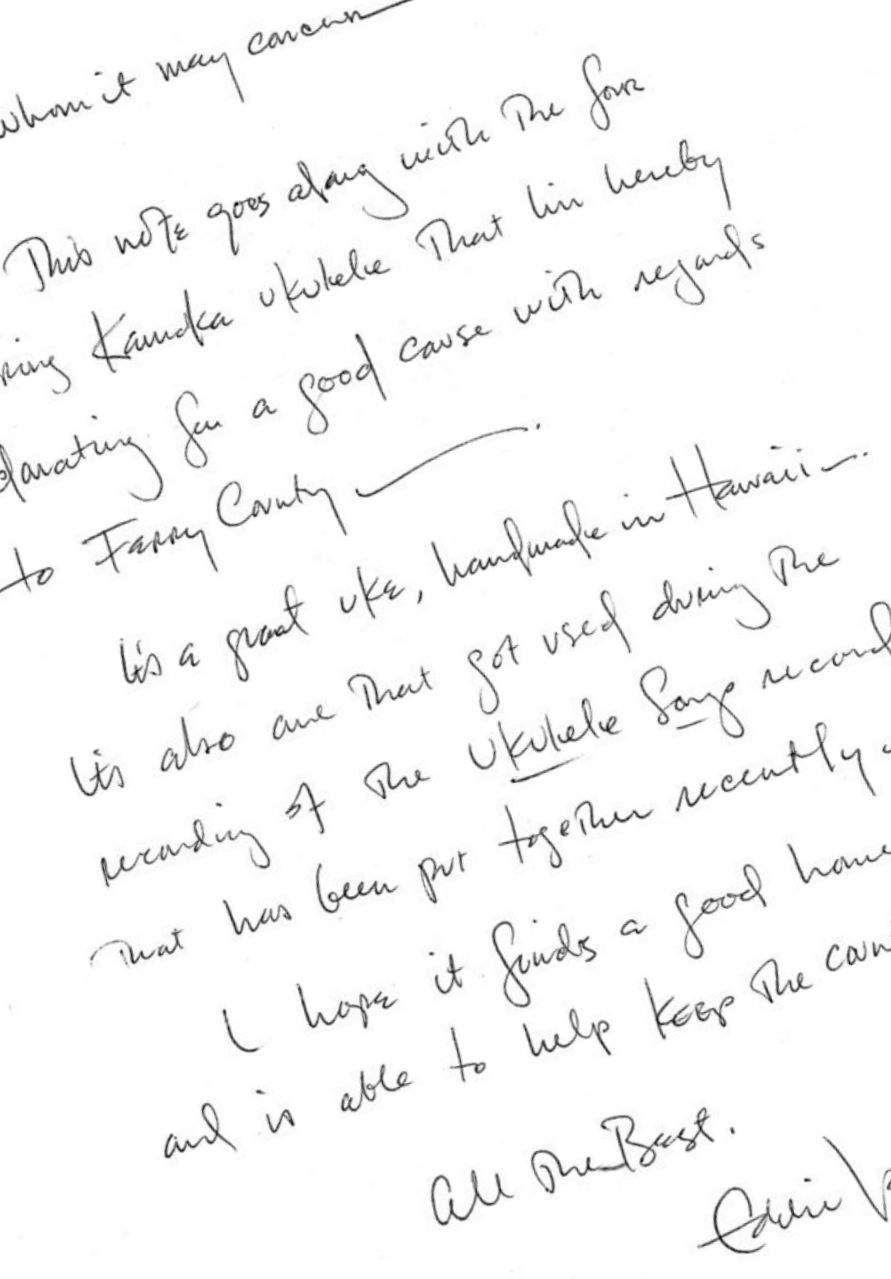 whom it may concern
This note goes along with the four
Kamaka ukulele That I'm hereby
donating for a good cause with regards
to Ferry County
It's a great uke, handmade in Hawaii.
It's also one That got used during The
recording of The Ukulele Songs record
That has been put together recently
I hope it finds a good home
and is able to help keep The
All The Best.
Eddie V